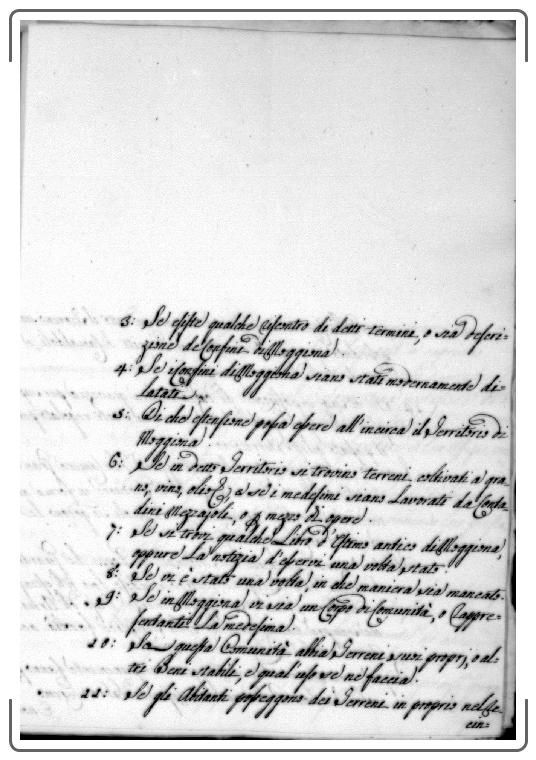 3: Se esiste qualche riscontro di detti termini, o sia descri=
zione de Confini di Moggiona.
4: Se i confini di Moggiona siano stati modernamente di=
latati.
5: Di che estensione possa essere all'incirca il Territorio di
Moggiona.
6: Se in detto Territorio si trovino terreni coltivati a gra=
no, vino, olio &, e se i medesimi siano lavorati da Conta=
dini Mezzajoli, o p mezzo di opere.
7: Se si trovi qualche Libro d'Estimo antico di Moggiona,
oppure la notizia d'esservi una volta stato.
8: Se vi è stato una volta, in che maniera sia mancato.
9: Se in Moggiona vi sia un Corpo di Comunità, o rappre=
sentanti la medesima.
10: Se questa Comunità abbia Terreni suoi proprj, o al=
tri Beni stabili, e qual'uso se ne faccia.
11: Se gli Abitanti posseggono dei Terreni in proprio nelle